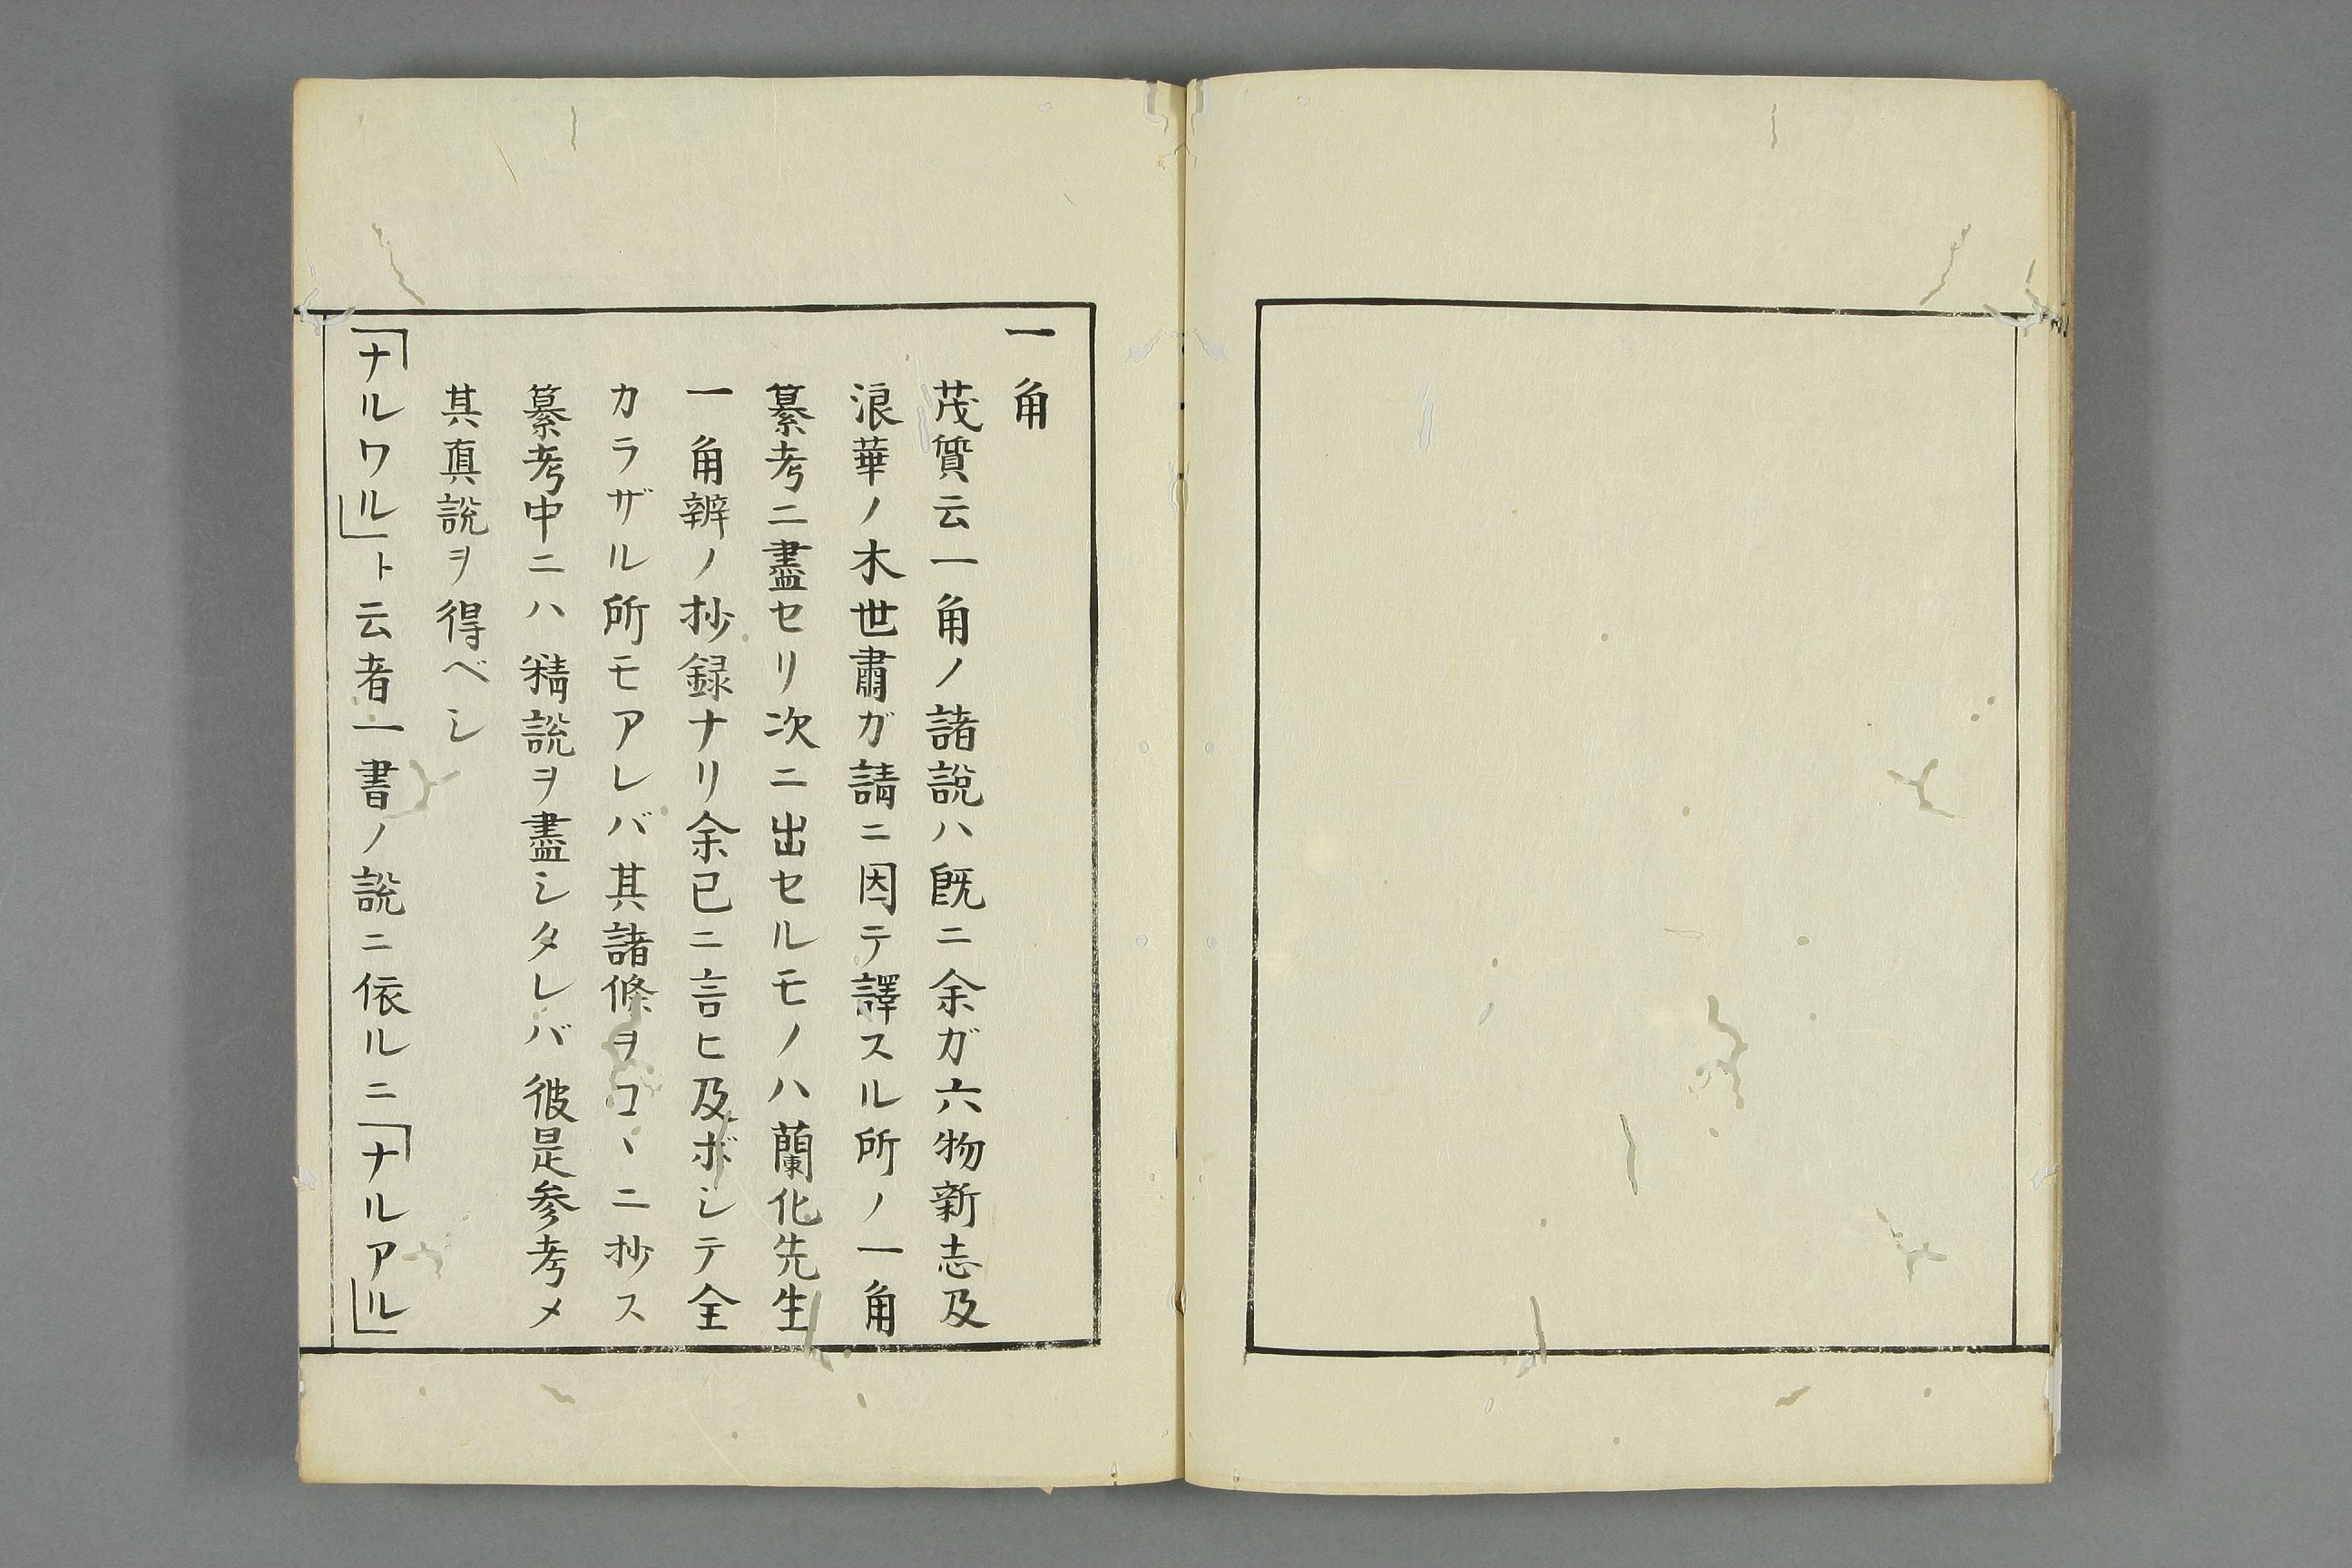 一角
茂質云一角ノ諸說ハ旣ニ余ガ六物新志及
浪華ノ木世肅ガ請ニ因テ譯スル所ノ一角
纂考ニ盡セリ次ニ出セルモノハ蘭化先生
一角辨ノ抄録ナリ余已ニ言ヒ及ボシテ全
カラザル所モアレバ其諸條ヲコヽニ抄ス
纂考中ニハ精說ヲ盡シタレバ彼是参考メ
其眞說ヲ得ベシ
「ナルワル」ト云者一書ノ說ニ依ルニ「ナルアル」